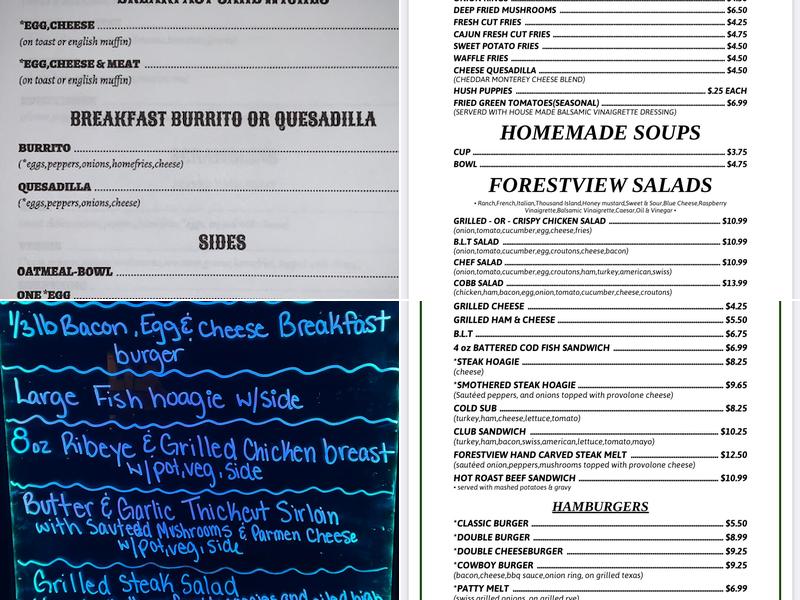 BREAKFAST SANDWICHES
*EGG,CHEESE
(on toast or english muffin)
*EGG,CHEESE & MEAT
(on toast or english muffin)
BREAKFAST BURRITO OR QUESADILLA
BURRITO
(*eggs,peppers,onions,homefries,cheese)
QUESADILLA
(*eggs,peppers,onions,cheese)
SIDES
OATMEAL-BOWL
ONE *EGG
DEEP FRIED MUSHROOMS $6.50
FRESH CUT FRIES $4.25
CAJUN FRESH CUT FRIES $4.75
SWEET POTATO FRIES $4.50
WAFFLE FRIES $4.50
CHEESE QUESADILLA $4.50
(CHEDDAR MONTEREY CHEESE BLEND)
HUSH PUPPIES $.25 EACH
FRIED GREEN TOMATOES(SEASONAL) $6.99
(SERVERD WITH HOUSE MADE BALSAMIC VINAIGRETTE DRESSING)
HOMEMADE SOUPS
CUP $3.75
BOWL $4.75
FORESTVIEW SALADS
• Ranch,French,Italian,Thousand Island,Honey mustard,Sweet & Sour,Blue Cheese,Raspberry
Vinaigrette,Balsamic Vinaigrette,Caesar,Oil & Vinegar •
GRILLED - OR - CRISPY CHICKEN SALAD $10.99
(onion,tomato,cucumber,egg,cheese,fries)
B.L.T SALAD $10.99
(onion,tomato,cucumber,egg,croutons,cheese,bacon)
CHEF SALAD $10.99
(onion,tomato,cucumber,egg,croutons,ham,turkey,american,swiss)
COBB SALAD $13.99
(chicken,ham,bacon,egg,onion,tomato,cucumber,cheese,croutons)
1/3 lb Bacon, Egg & Cheese Breakfast
burger
Large Fish hoagie w/side
8oz Ribeye & Grilled Chicken breast
w/pot,veg,side
Butter & Garlic Thickcut Sirloin
with Sauteed Mushrooms & Parmen Cheese
w/pot,veg,side
Grilled Steak Salad
GRILLED CHEESE $4.25
GRILLED HAM & CHEESE $5.50
B.L.T $6.75
4 oz BATTERED COD FISH SANDWICH $6.99
*STEAK HOAGIE $8.25
(cheese)
*SMOTHERED STEAK HOAGIE $9.65
(Sautéed peppers, and onions topped with provolone cheese)
COLD SUB $8.25
(turkey,ham,cheese,lettuce,tomato)
CLUB SANDWICH $10.25
(turkey,ham,bacon,swiss,american,lettuce,tomato,mayo)
FORESTVIEW HAND CARVED STEAK MELT $12.50
(sautéed onion,peppers,mushrooms topped with provolone cheese)
HOT ROAST BEEF SANDWICH $10.99
• served with mashed potatoes & gravy
HAMBURGERS
*CLASSIC BURGER $5.50
*DOUBLE BURGER $8.99
*DOUBLE CHEESEBURGER $9.25
*COWBOY BURGER $9.25
(bacon,cheese,bbq sauce,onion ring, on grilled texas)
*PATTY MELT $6.99
(swiss,grilled onions, on grilled rye)